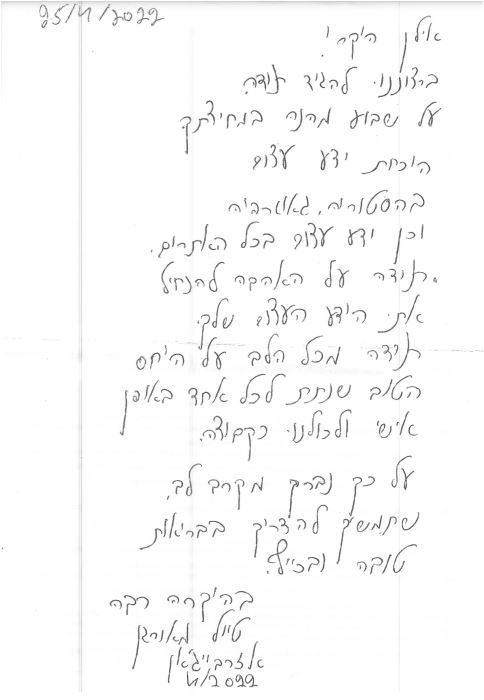 25/11/2022
אילן היקר!
ברצוננו להגיד תודה
על שבוע מהנה במחיצתך
הוכחת ידע עצום
בהסטוריה, גאוגרפיה
וכן ידע עצום בכל האתרים.
תודה על האהבה להנחיל
את הידע העצום שלך.
תודה מכל הלב על היחס
הטוב שנתת לכל אחד באופן
אישי ולכולנו כקבוצה.
על כך נברך מקרב לב,
שתמשיך להדריך בבריאות
טובה ובכייף.
בהוקרה רבה
טיול מאורגן
אזרבייג'אן
11/2022